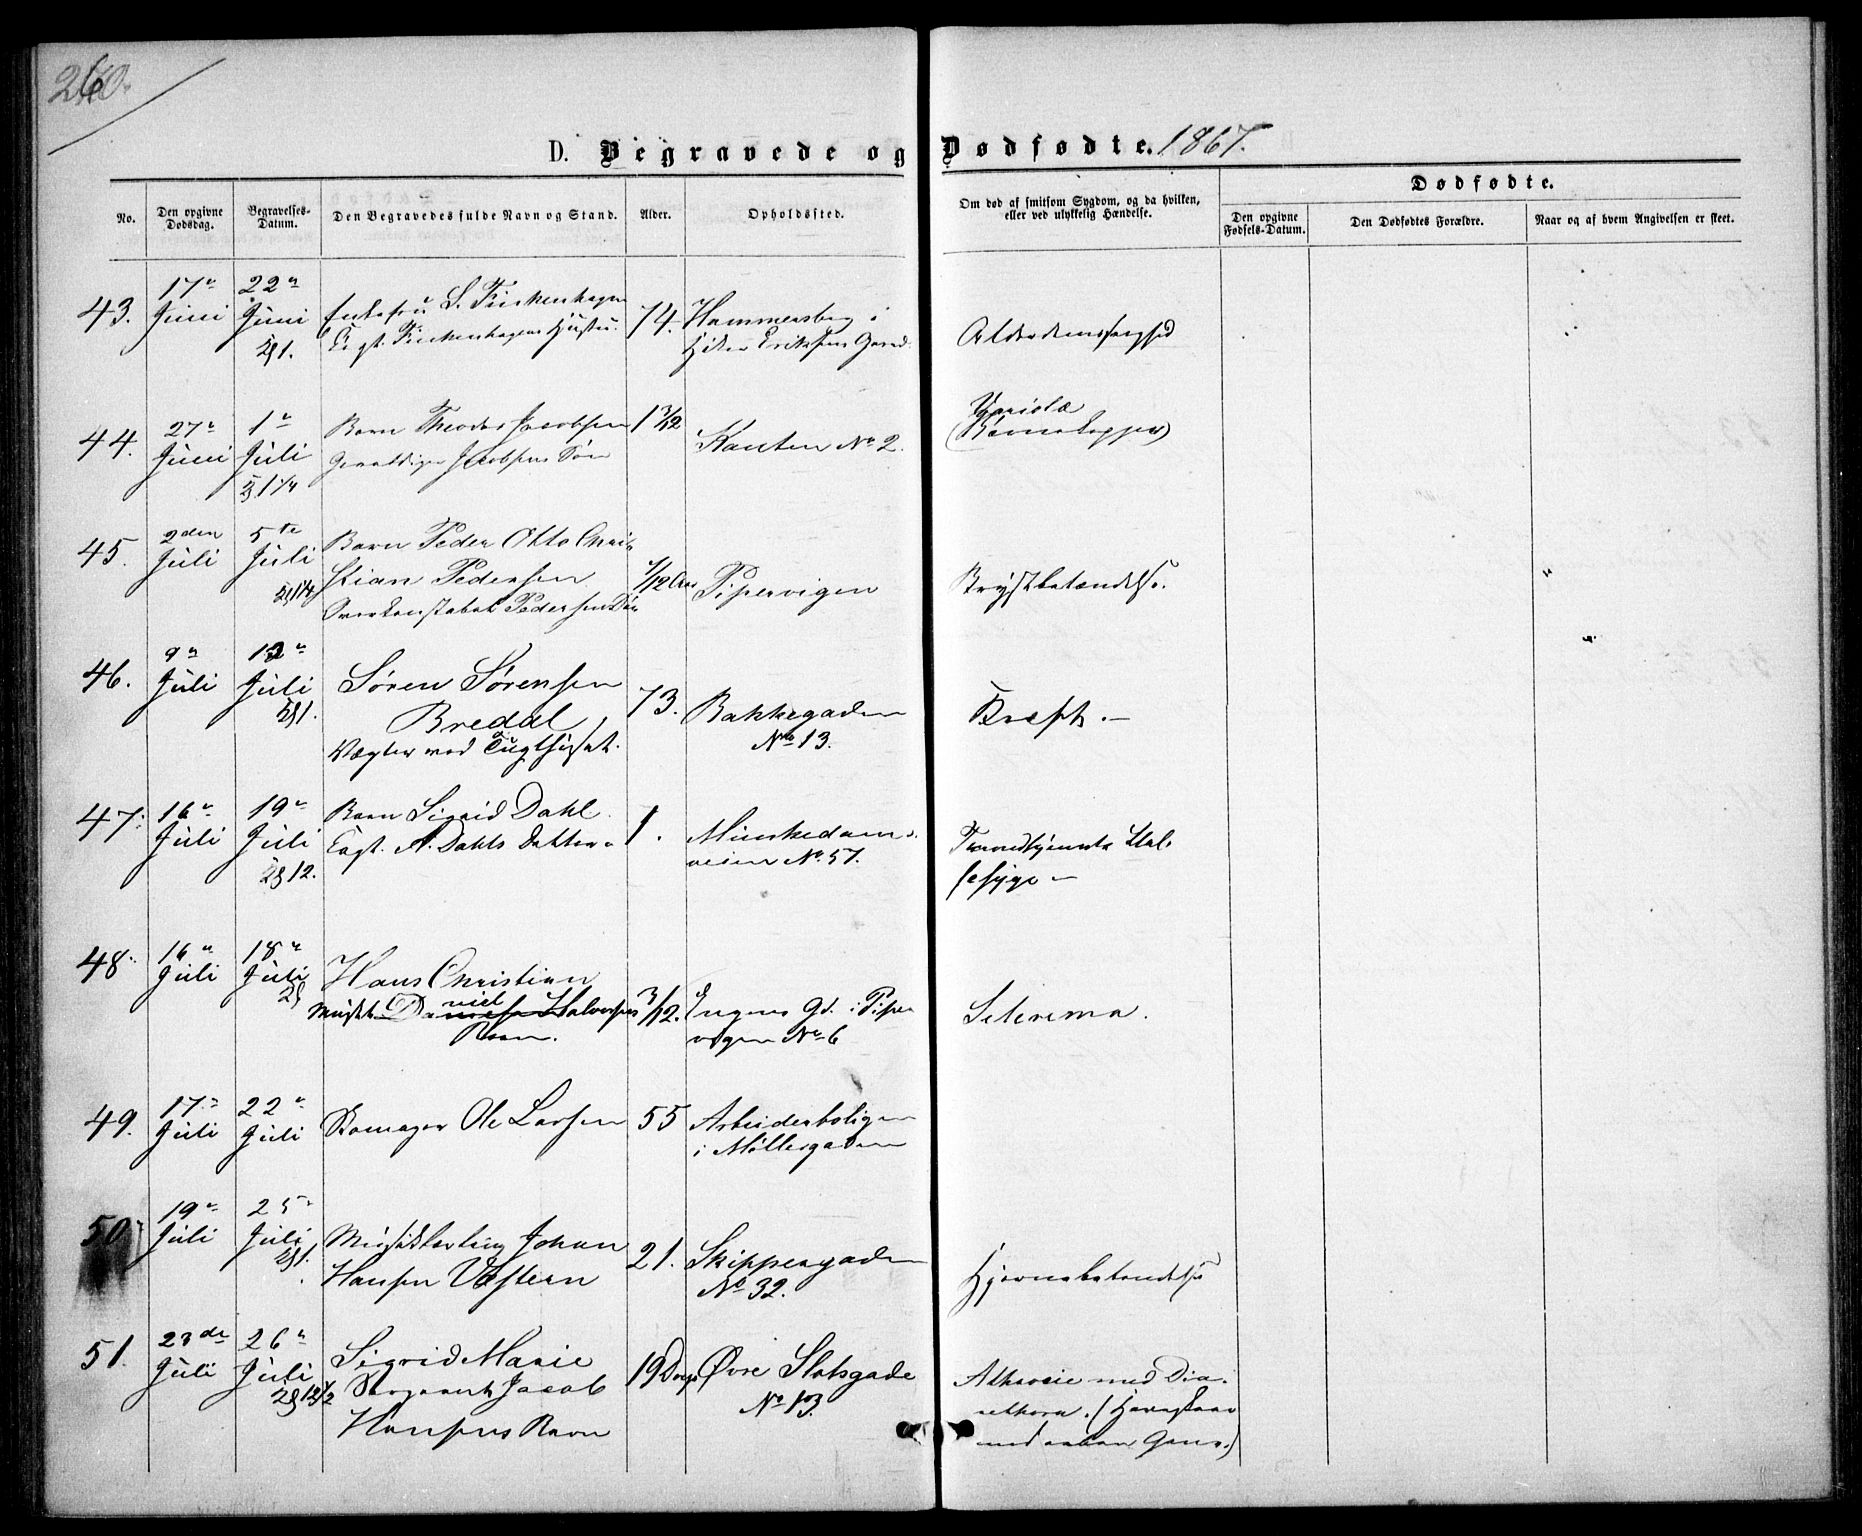 260.
D. Begravede og Dødfødte. 1867.
No.
Den opgivne Dødsdag.
Begravelses-Datum.
Den Begravedes fulde Navn og Stand.
Alder.
Opholdssted.
Om død af smitsom Sygdom, og da hvilken, eller ved ulykkelig Hændelse.
Dødfødte.
Den opgivne Fødsels-Datum.
Den Dødfødtes Forældre.
Naar og af hvem Angivelsen er skeet.
43.
17n Juni
22n Juni
Kl 1.
Enkefru S. Finkenhagen
Finkenhagens Hustru.
74.
Hammersberg i
Eriksens Gaard
Alderdomssvaghed
44.
27n Juni
1n Juli
Kl. 1 1/4
Barn Theodor Jacobsen
Gevaldiger Jacobsens Søn
1 3/12
Kanten No 2.
Variolæ
(Børnekopper)
45.
2den Juli
5te Juli
Kl 1 1/4
Barn Peder Otto Chri-
stian Pedersen
Overkonstabel Pedersens Søn
/12 Aar
Pipervigen
Brystbetændelse.
46.
9n Juli
Juli
Kl 1.
Søren Sørensen
Bredal
Vægter ved Tugthuset.
73.
Bakkegaden
No 13.
Kræft. —
47.
16n Juli
19n Juli
Kl 12.
Barn Sigrid Dahl.
Capt. A. Dahls Datter
1.
Munkedams-
veien No. 57.
Tærendhjemte Hal-
sesyge —
48.
16n Juli
18n Juli
Kl
Hans Christian
Musik. Daniel Halvorsens
Barn.
3/12.
Engens Gd. i Piper
vigen No 6
Sclerema.
49.
17n Juli
22n Juli
Skomager Ole Larsen
55
Arbeiderboligen
i Møllergaden
50.
19n Juli
25n Juli
Kl 1.
Musiklærling Johan
Hansen Vestern
21.
Skippergaden
No 32.
Hjernebetændelse
51.
23de Juli
26n Juli
Kl 12 1/2
Sigrid Marie
Sergeant Jacob
Hansens Barn
19 Dage
Øvre Slotsgade
No 13.
med
(Hareskaar
med aaben Gane.)